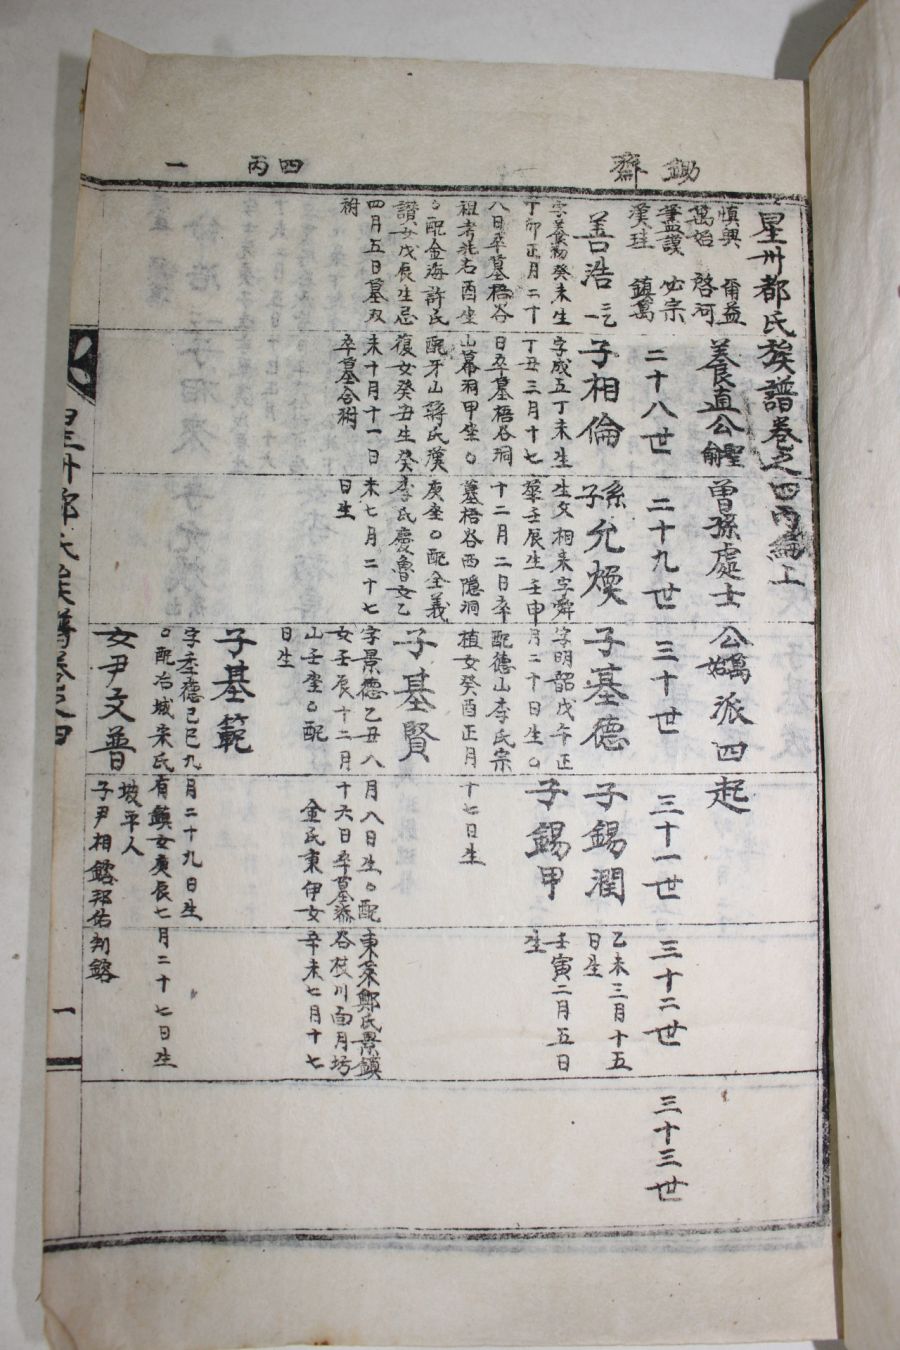 鋤齋
四丙
一
星州都氏族譜卷之四丙編上
慎興 爾益
萬始 啓河
養直公 曾孫處士公 派四起
漢珪 鎮萬
二十八世
二十九世
三十世
三十一世
三十二世
三十三世
善浩
字養初癸未生
丁卯正月二十
八日卒墓梧谷
祖考兆右酉坐
○配金海許氏
讚女戊辰生忌
四月五日墓双
祔
子相倫
字成五丁未生
丁丑三月十七
日卒墓梧谷洞
山幕洞甲坐○
配牙山蔣氏漢
復女癸丑生癸
未十月十一日
卒墓合祔
孫允煥
生父相来字舜
華壬辰生壬申
十二月二日卒
墓梧谷西隠洞
庚坐○配全義
李氏慶魯女乙
未七月二十七
日生
子基德
字明韶戊午正
月二十日生○
配德山李氏宗
植女癸酉正月
十七日生
子錫潤
乙未三月十五
日生
子錫甲
壬寅二月五日
生
子基賢
字景德乙丑八月八日生○配東萊鄭氏景鎮
女壬辰十二月十六日卒墓 谷枝川面月坊
山壬坐○配金氏東伊女辛未七月十七
日生
子基範
字季德己巳九月二十九日生
○配冶城宋氏有鎮女庚辰七月二十七日生
女尹文普
坡平人
子尹相鎔邦佑判鎔
星州都氏族譜卷之四
一